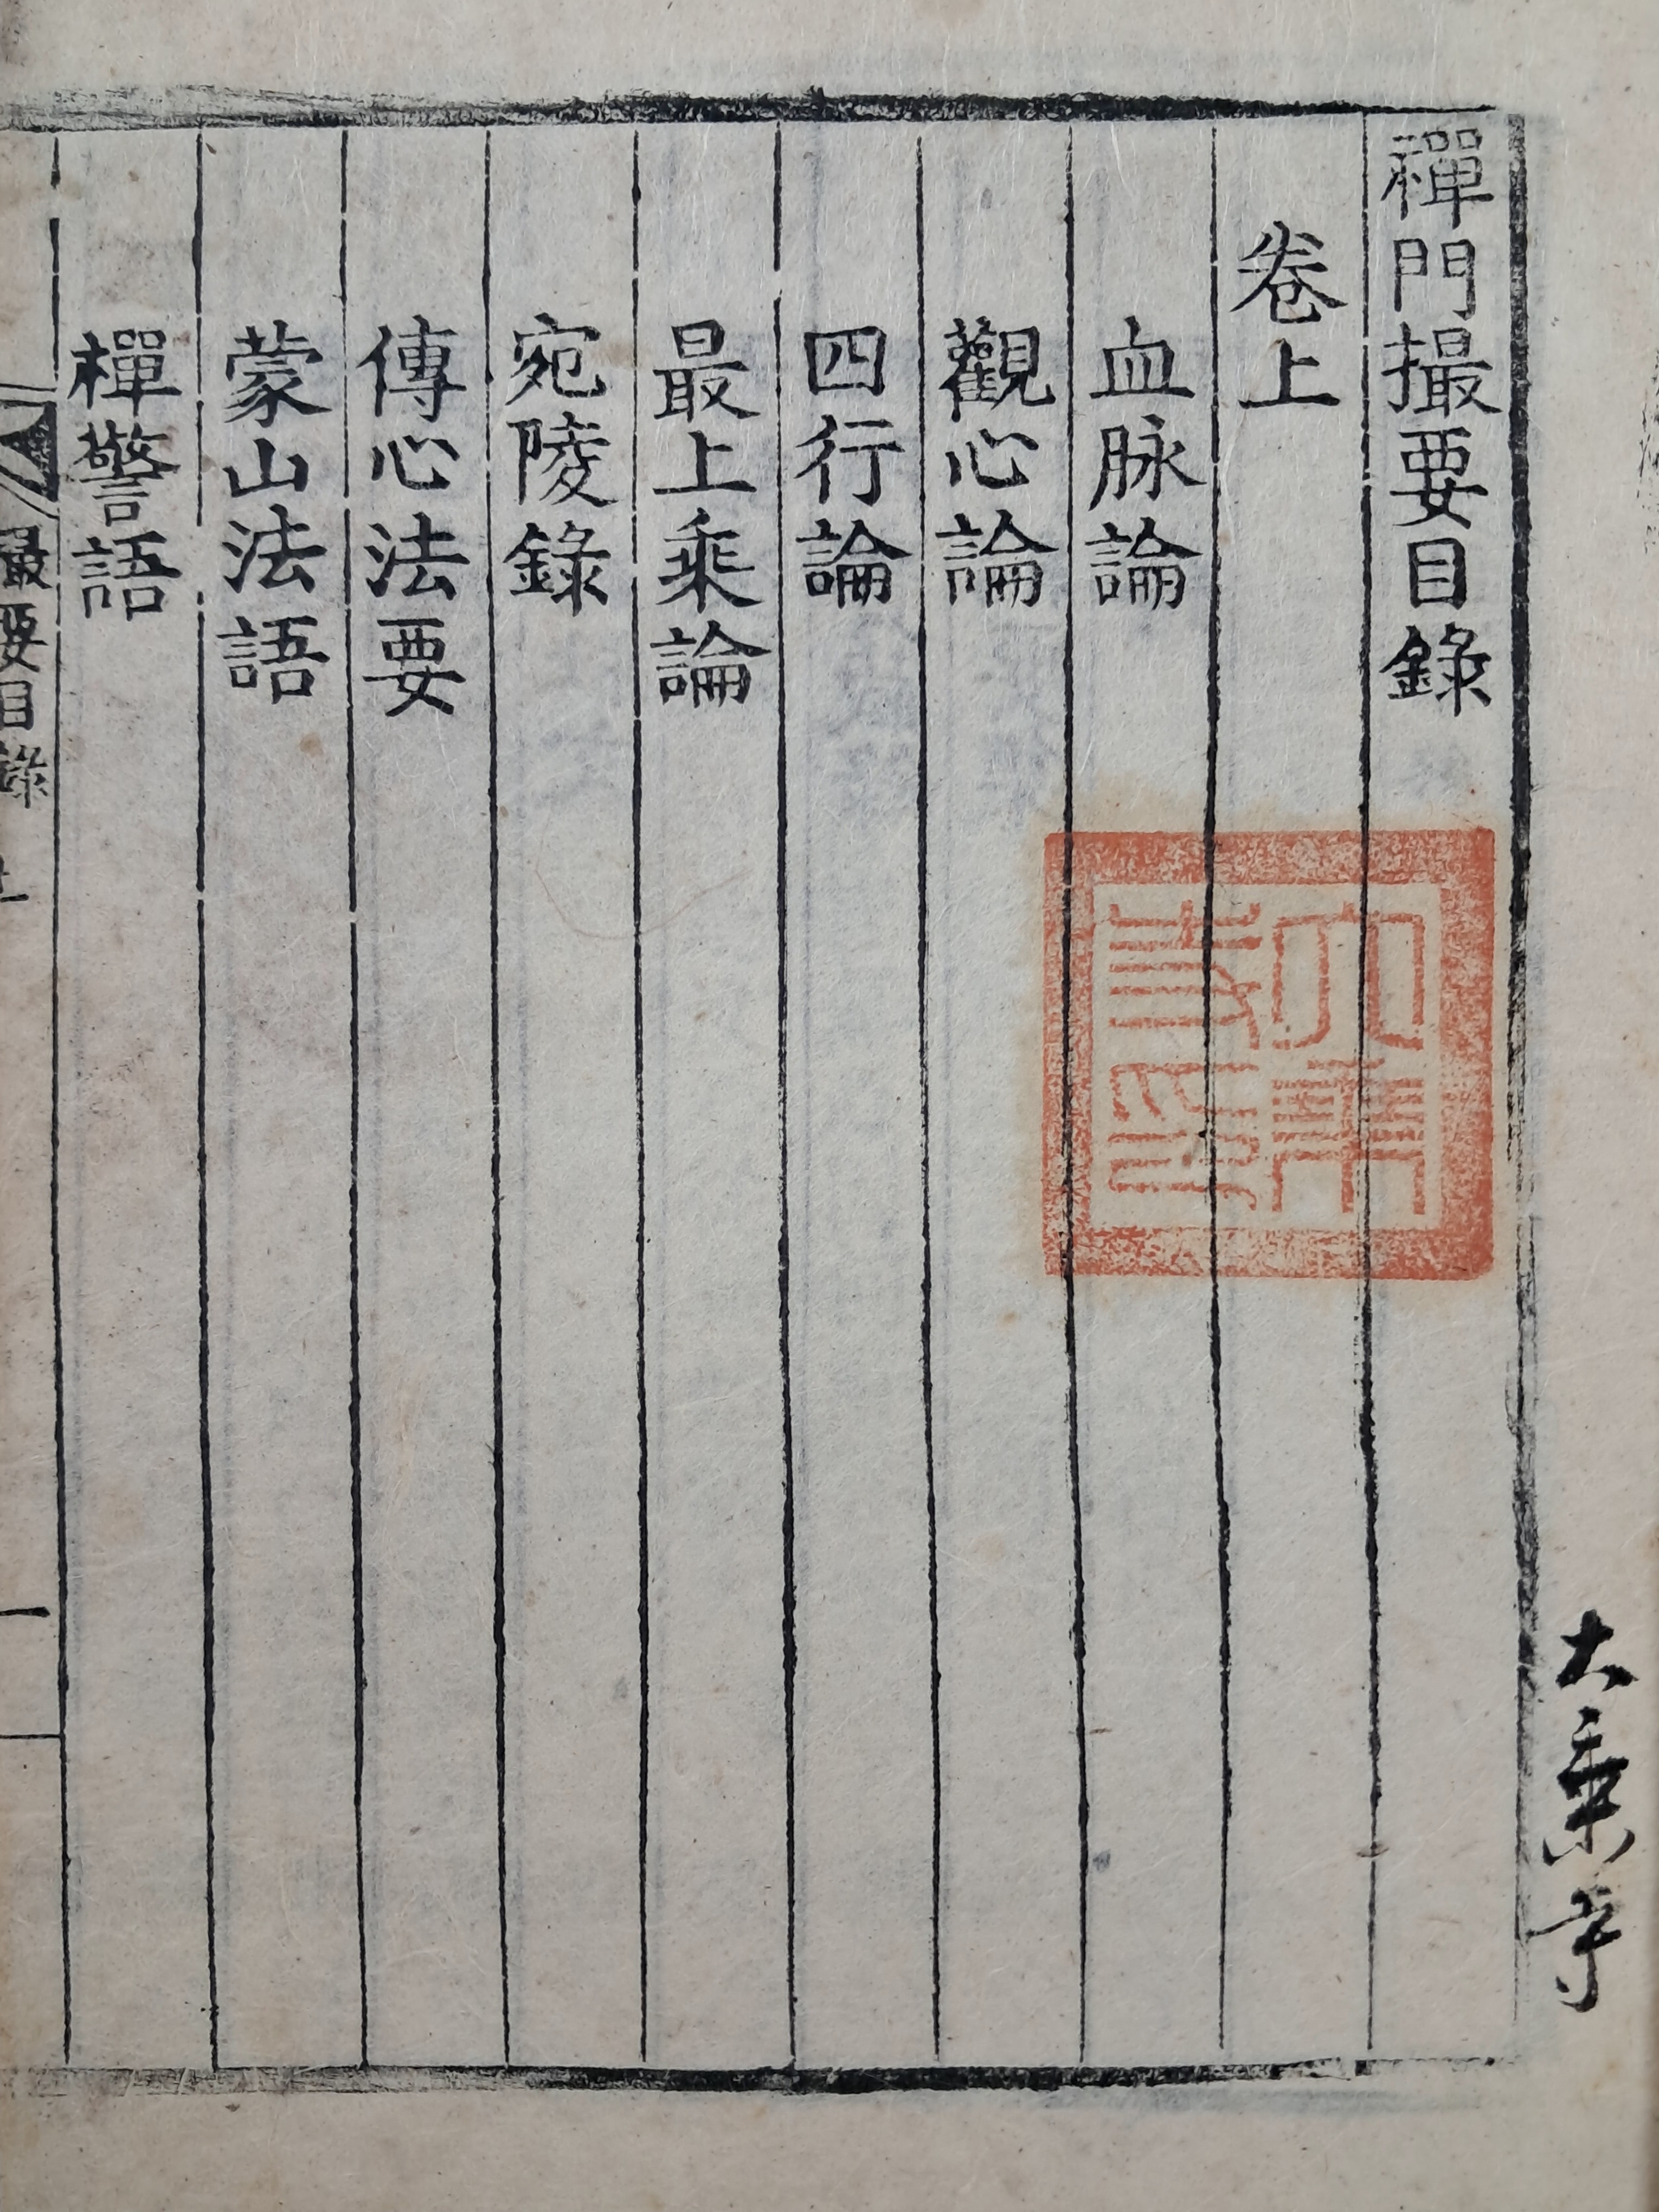 禪門撮要目錄
卷上
血脉論
觀心論
四行論
最上乘論
宛陵錄
傳心法要
蒙山法語
禪警語
撮要目錄 上
一
大乘寺